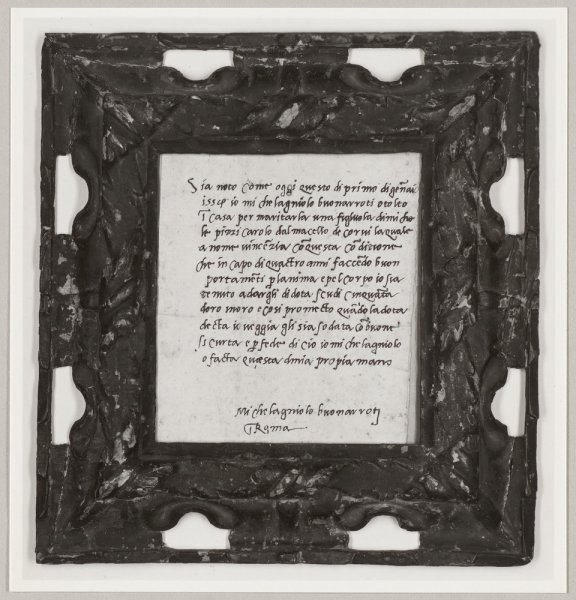 Sia noto come oggi questo dì primo di gēnai
io mi chelagniolo buonarroti o tolto
ī casa per maritarla una figliuola di mi che
le pizzicarolo dal macello de corvi la quale
a nome vincētia cō questa cōditione
che in capo di quattro anni faccēdo buon
portamēti p lanima e pel corpo io sia
tenuto a dargli di dota scudi cinquāta
doro inoro e così prometto quādo la dota
decta io veggia gli sia sodata cō buone
e p fede di ciò io mi chelagniolo
o facta questa di mia propia mano
Mi chelagniolo buonarroti
ī Roma